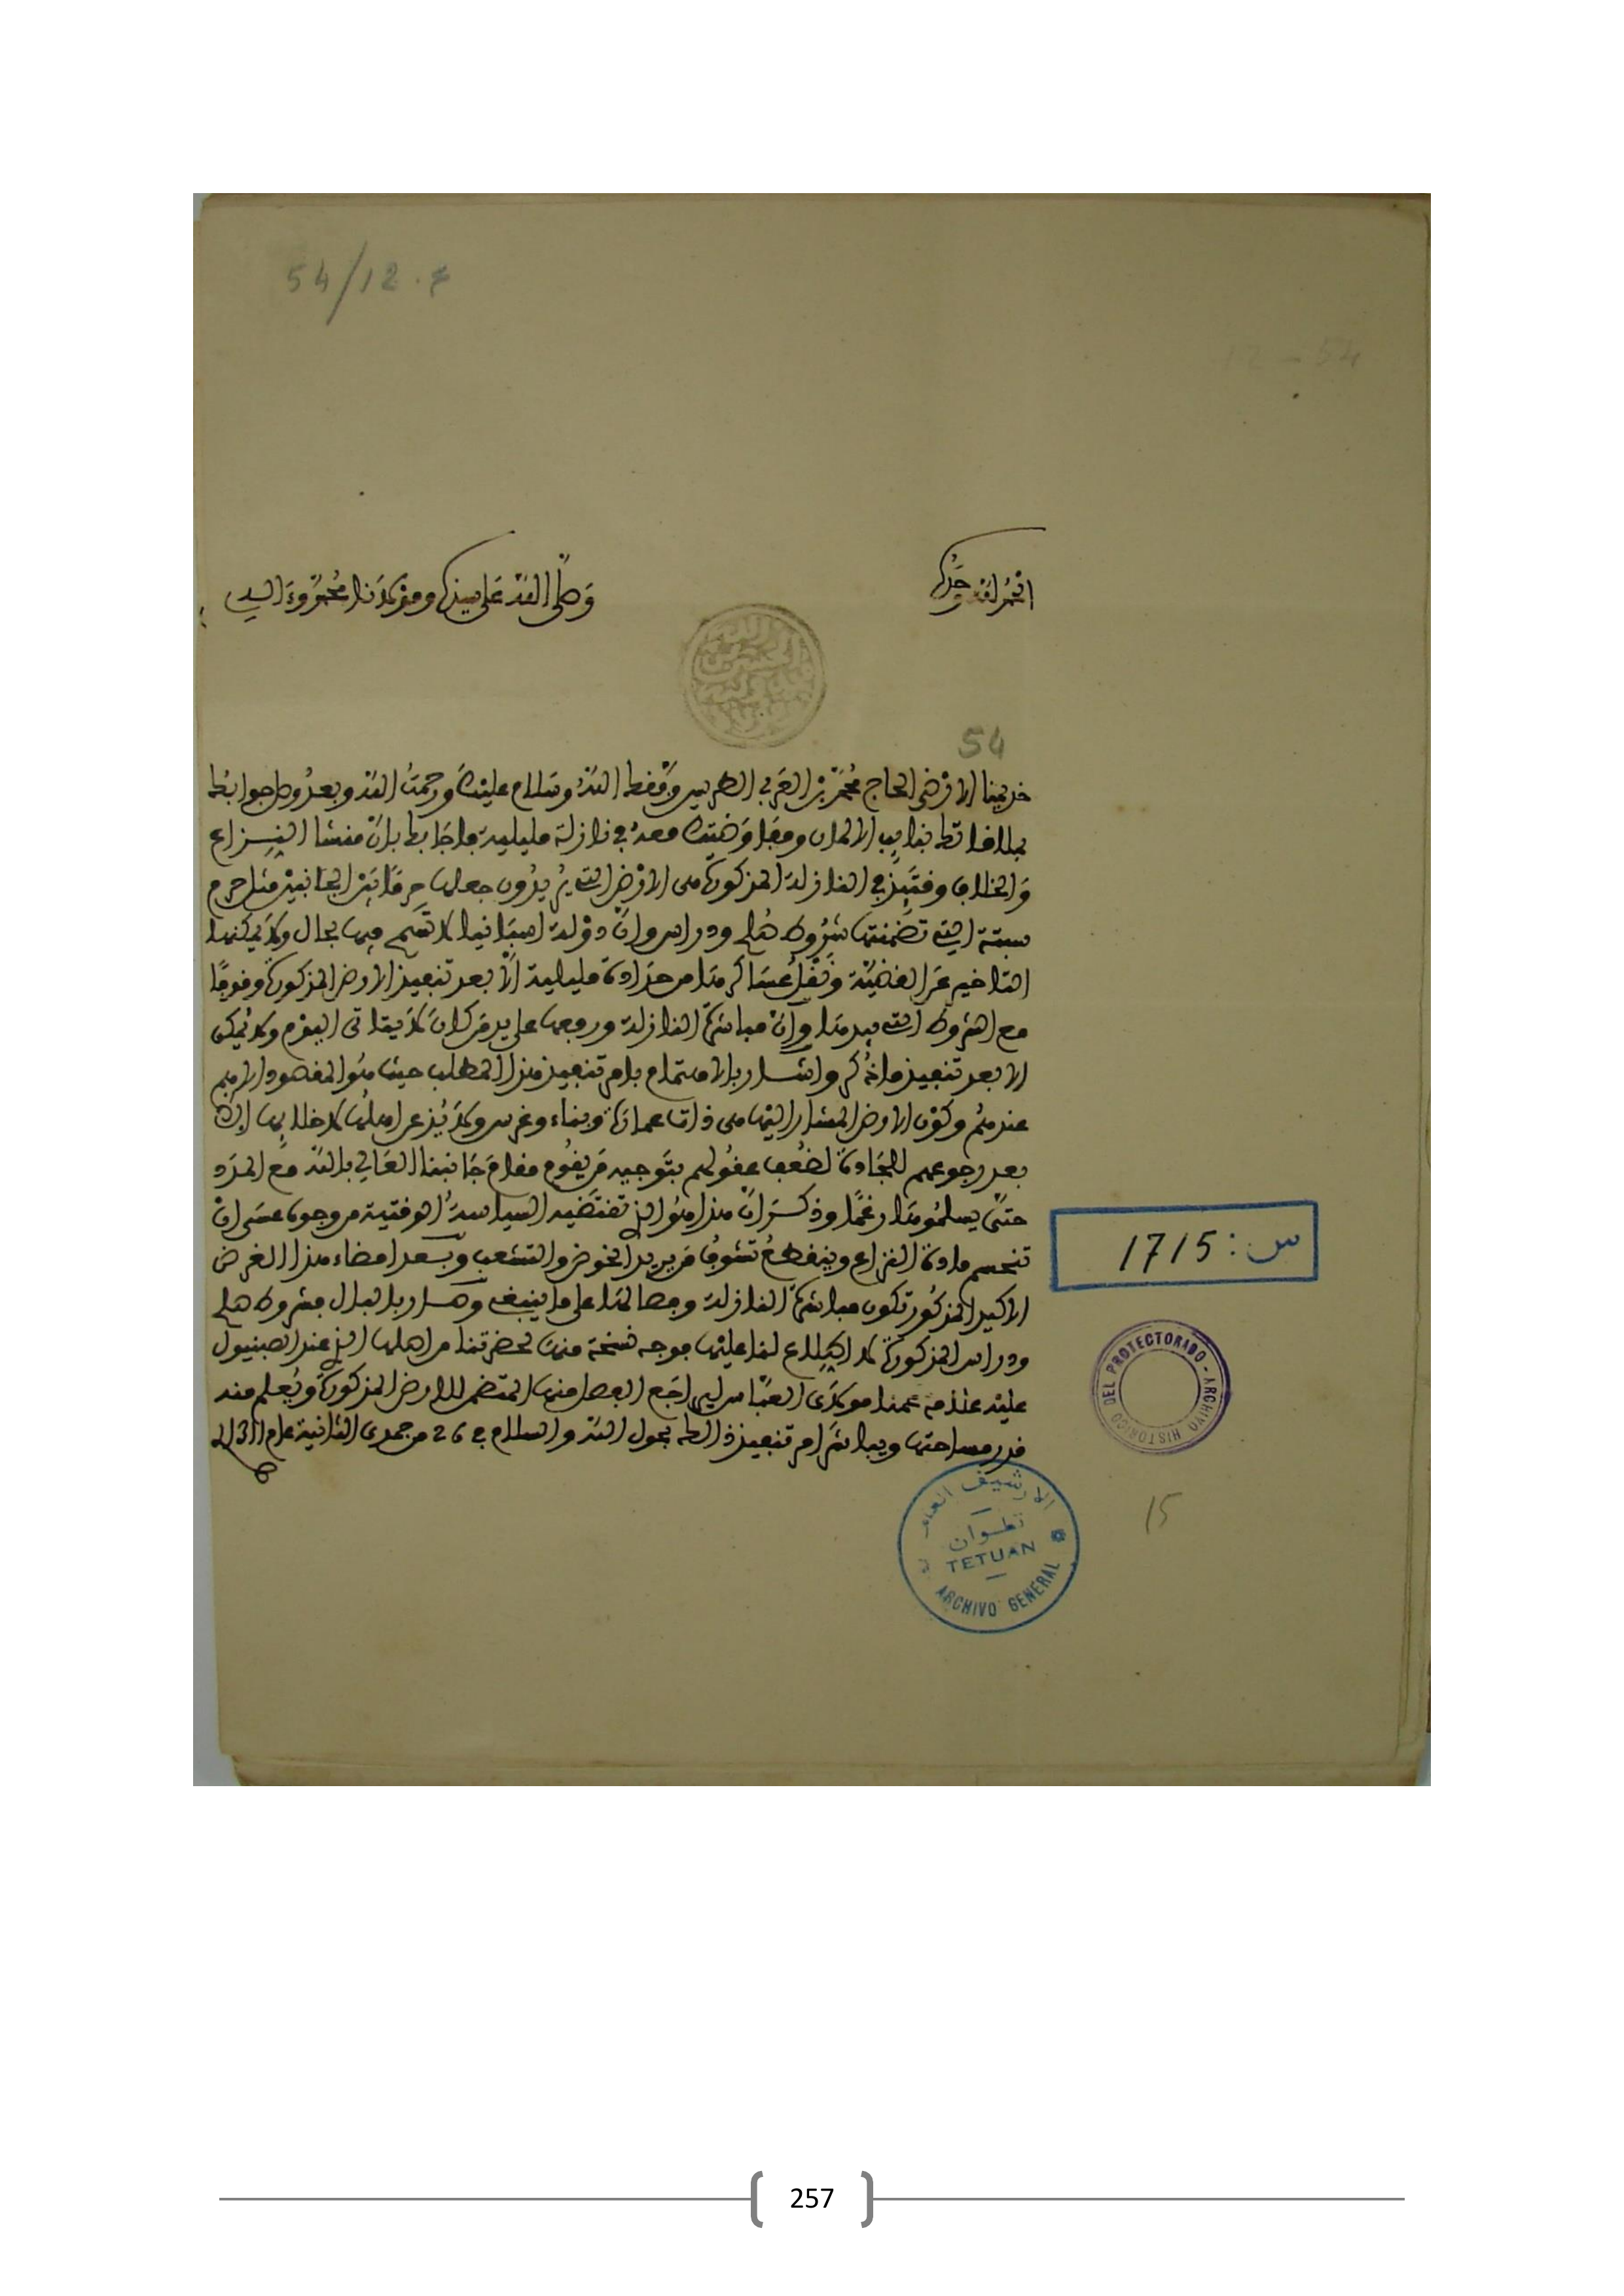 54/12.4
12 - 54
الحمد لله وحده
وصلى الله على سيدنا ومولانا محمد وءاله
54
خديمنا الارضى الحاج محمد بن العربي الطريس وفقك الله وسلام عليك ورحمت الله وبعد وصل جوابك
بملاقاتك بنايب الالمان ومفاوضتك معه في نازلة مليلية فاجابك بان منشا النزاع
والخلاف وقتئذ في النازلة المذكورة هي الارض التي يريدون جعلها حرما بين الجانبين مثل حرم
سبتة التي تضمنتها شروط صلح ودراس وان دولة اسبانيا لا تسمح فيها بحال ولا يمكنها
التاخير عن القضية ونقل عساكرها من حدادة مليلية الا بعد تنفيذ الارض المذكورة وفوقا
مع الشروط التي بيدها وان مباشرة النازلة وروجها على يد من كان لا يتاتى اليوم ولا يمكن
الا بعد تنفيذ ما ذكر واشار بالاهتمام بامر تنفيذ هذا المطلب حيث هو المقصود الاهم
عندهم وكون الارض المشار اليها هي ذات عمارة وبناء وغرس ولا يذعن اهلها لاخلايها
بعد رجوعهم للجادة لضعف عقولهم بتوجيه من يقوم مقام جانبنا العالي بالله مع
حتى يسلموها رغما وذكر ان هذا هو الذي تقتضيه السياسة الوقتية من وجوه عسى ان
تنحسم مادة النزاع وينقطع تشوف من يريد الخوض والتشعب وبعد امضاء هذا الغرض
الاكيد المذكور تكون مباشرة النازلة وفصالها على ما ينبغي وصار بالبال فشروط صلح
ودراس المذكورة لا اطلاع لنا عليها فوجه نسخة منها لحضرتنا من اصلها الذي عند الصبنيول
عليه علامة عمنا مولاي العباس ليراجع الفصل منها المتضمن للارض المذكورة ويعلم منه
قدر مساحتها ويباشر امر تنفيذ ذلك بحول الله والسلام في 26 من جمدى الثانية عام 1311
س: 1715
ARCHIVO HISTORICO DEL PROTECTORADO
15
الارشيف العام
تطوان
TETUAN
ARCHIVO GENERAL
257